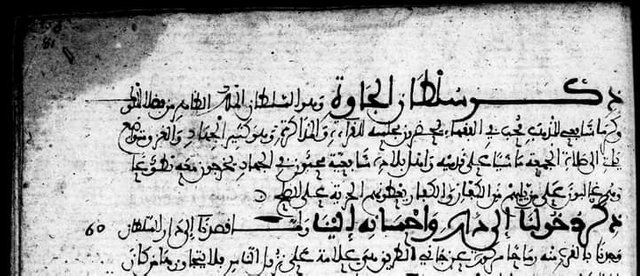 ذكر سلطان الجاوة وهو السلطان الملك الظاهر من فضلا الملو
شافعي المذهب محب في الفقهاء يحضرون مجلسه للقراءة والمذاكرة وهو كثير الجهاد والغزو ومتواضع
ياتي الى صلاة الجمعة ماشيا على قدميه واهل بلاده شافعية محبون في الجهاد يخرجون معه تطوعا
وهم غالبون على من يليهم من الكفار والكفار يعطونهم الجزية على الصلح
ذكر دخولنا الى داره واحسانه الينا ولما قصدنا الى دار السلطان
وجدنا بالقرب منه رماحا مركوزة عن جانبي الطريق هي علامة على نزول الناس فلا يتجاوزها من كان
60